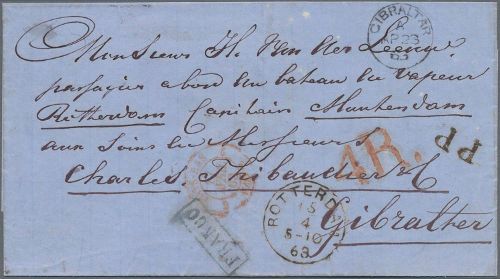 GIBRALTAR
A
AP 23
63
Monsieur H. Van der Leeuw
passagier abord du bateau du vapeur
Rotterdam Capitain
aux Soins de Messieurs
Charles Thibaudier & C
Gibralther
1R.
PP
FRANCO
ROTTERDAM
15
4
5-10
63